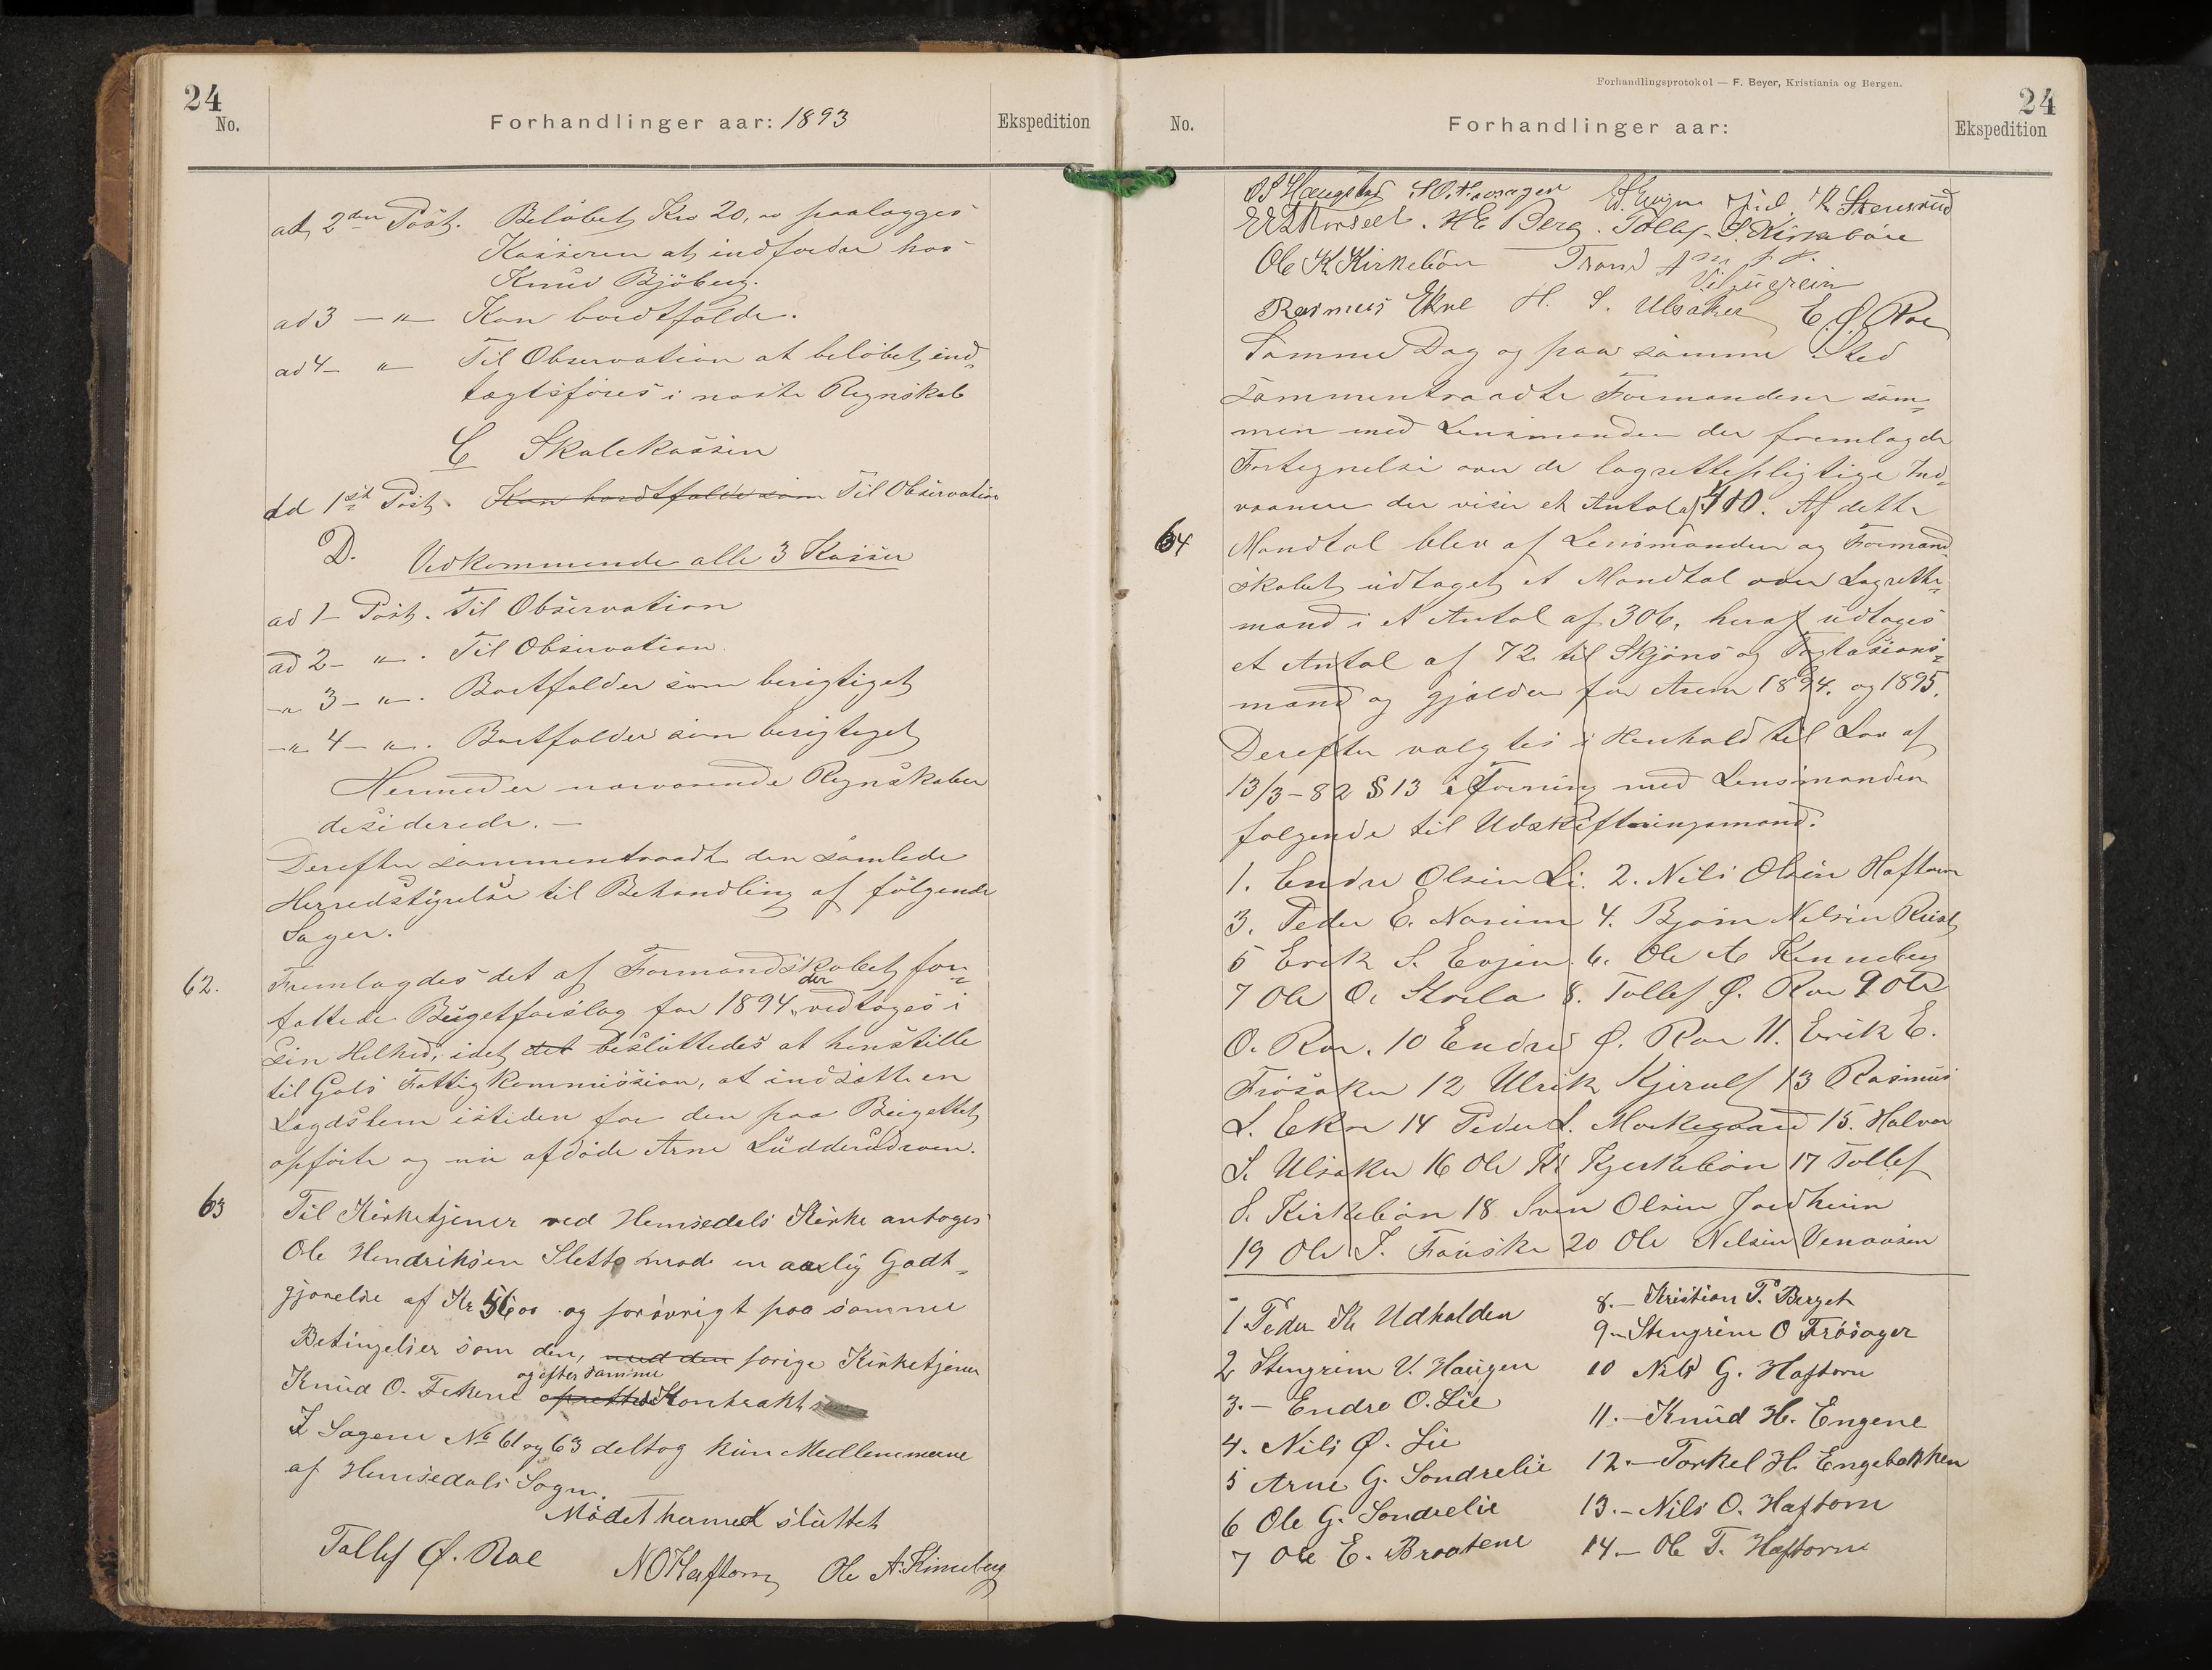 24
No.
Forhandlinger aar: 1893
Ekspedition
ad 2den Post. Beløbet Kro 20,00 paalægges
Kasseren at indfordre hos
Knud Bjøberg.
ad 3 — " — Kan bordtfalde.
ad 4 — " — Til Observation at beløbet ind-
tægtsføres i næste Regnskab
C Skolekassen
ad 1st Post. Kan bordtfalde som Til Observation
D. Vedkommende alle 3 Kasser
ad 1 — Post. Til Observation
ad 2 — " . Til Observation
— " 3 — " . Bortfalder som berigtiget
— " 4 — " . Bortfalder som berigtiget
Hermed er nærværende Regnskaber
desiderede. —
Derefter sammentraadte den samlede
Herredstyrelse til Behandling af følgende
Sager.
62. Fremlagdes det af Formandskabet for-
fattede Bugetforslag for 1894, der vedtoges i
sin Helhed, idet det besluttedes at henstille
til Gols Fattigkommission, at indsætte en
Lægdslem istedenfor den paa Bugettet
opførte og nu afdøde Arne Ludderudroen.
63 Til Kirketjener ved Hemsedals Kirke antoges
Ole Hendriksen Sletto mod en aarlig Godt-
gjørelse af Kr 56 00 og forøvrigt paa samme
Betingelser som den, med den forige Kirketjener
og efter samme
Knud O. Fekene oprettede Kontrakt
I Sagerne No 61 og 63 deltog kun Medlemmerne
af Hemsedals Sogn.
Mødet hermed sluttet
Tollef Ø. Roe N O Haftorn Ole A. Kinneberg
Forhandlingsprotokol — F. Beyer, Kristiania og Bergen.
24
No.
Forhandlinger aar:
Ekspedition
O S Haugstad K. Stensrud
H E Berg. Tollef S. Kirkebøen
Ole K Kirkebøen Trond
Rasmus Ekre H. S. Ulsaker E. Ø. Roe
Samme Dag og paa samme Sted
sammentraadte Formændene sam-
men med Lensmanden der fremlagde
Fortegnelse over de lagrettepligtige Ind-
vaanere der viser et Antal af 410. Af dette
64 Mandtal blev af Lensmanden og Formand-
skabet udtaget et Mandtal over Lagrette-
mænd i et Antal af 306, heraf udtoges
et Antal af 72 til Skjøns og Taxtasions-
mænd og gjælder for Aarene 1894. og 1895.
Derefter valgtes i Henhold til Lov af
13/3-82 § 13 i Forening med Lensmanden
følgende til Udskiftningsmænd.
1. Endre Olsen Li. 2. Nils Olsen Haftorn
3. Peder E. Norim 4. Bjørn Nilsen Rust
5 Erik S. Evjen. 6. Ole A Kinneberg
7 Ole O. Storla 8. Tollef Ø. Roe 9 Ole
O. Roe. 10 Endre Ø. Roe 11. Erik E.
Frøsaker 12 Ulrik Kjerulf 13 Rasmus
L. Ekre 14 Peder L. Morkegaard 15. Halvor
S. Ulsaker 16 Ole K Kjerkebøen 17 Tollef
S. Kirkebøen 18 Sven Olsen Jordheim
19 Ole T. Fauske 20 Ole Nilsen Venaasen
1 Peder K Udhalden
2 Stengrim V. Haugen
3. — Endre O. Lie
4. Nils Ø. Lie
5 Arne G. Sondrelie
6 Ole G. Sondrelie
7 Ole E. Braatene
8. — Kristian T. Berget
9. — Stengrim O Frøsager
10 Nils G. Haftorn
11. — Knud H. Engene
12. — Torkel H. Engebakken
13. — Nils O. Haftorn
14. — Ole T. Haftorn